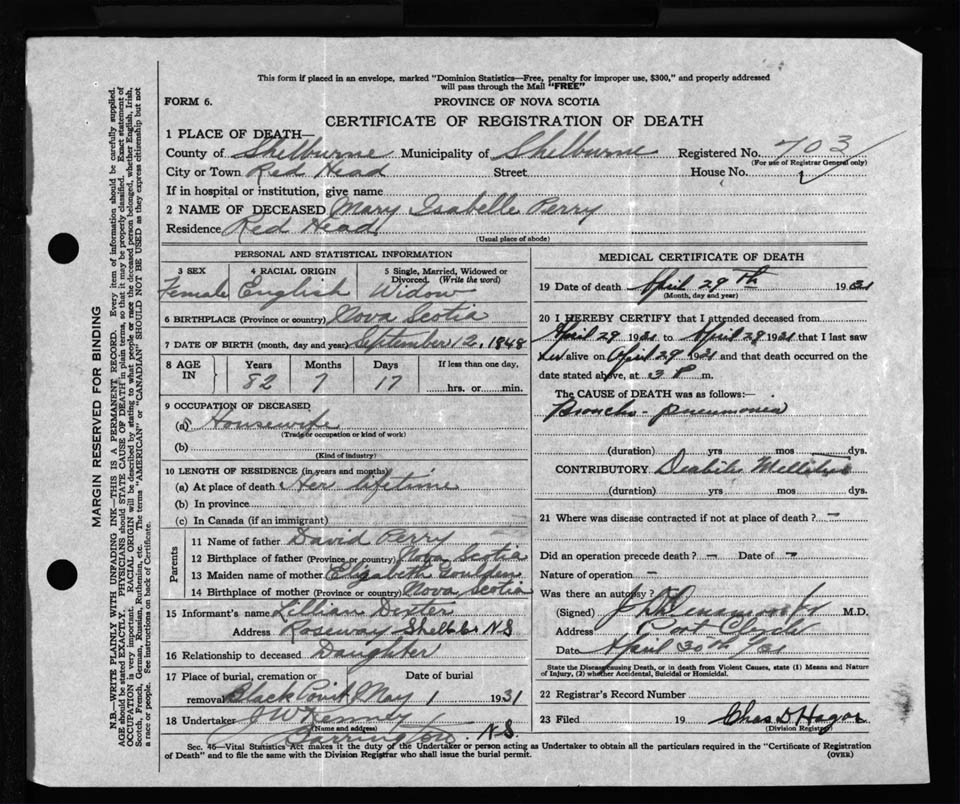 This form if placed in an envelope, marked "Dominion Statistics—Free, penalty for improper use, $300," and properly addressed
will pass through the Mail "FREE"
FORM 6.
PROVINCE OF NOVA SCOTIA
CERTIFICATE OF REGISTRATION OF DEATH
1 PLACE OF DEATH—
County of Shelburne Municipality of Shelburne Registered No. 703
(For use of Registrar General only)
City or Town Red Head Street House No.
If in hospital or institution, give name
2 NAME OF DECEASED Mary Isabelle Perry
Residence Red Head
(Usual place of abode)
PERSONAL AND STATISTICAL INFORMATION
3 SEX 4 RACIAL ORIGIN 5 Single, Married, Widowed or Divorced. (Write the word)
Female English Widow
6 BIRTHPLACE (Province or country) Nova Scotia
7 DATE OF BIRTH (month, day and year) September 12, 1848
8 AGE IN Years Months Days If less than one day,
82 7 17 hrs. or min.
9 OCCUPATION OF DECEASED
(a) Housewife
(Trade or occupation or kind of work)
(b)
(Kind of industry)
10 LENGTH OF RESIDENCE (in years and months)
(a) At place of death Her lifetime
(b) In province
(c) In Canada (if an immigrant)
Parents
11 Name of father David Perry
12 Birthplace of father (Province or country) Nova Scotia
13 Maiden name of mother Elizabeth
14 Birthplace of mother (Province or country) Nova Scotia
15 Informant's name Lillian Dexter
Address Roseway N S
16 Relationship to deceased Daughter
17 Place of burial, cremation or
removal Black Point May 1 1931
18 Undertaker J W Kenney
(Name and address)
Barrington N.S
MEDICAL CERTIFICATE OF DEATH
19 Date of death April 29th 1931
(Month, day and year)
20 I HEREBY CERTIFY that I attended deceased from
April 29 1931 to April 29 1931 that I last saw
her alive on April 29 1931 and that death occurred on the
date stated above, at 3 P m.
The CAUSE OF DEATH was as follows:—
Broncho-pneumonia
(duration) yrs mos. dys.
CONTRIBUTORY Diabetes Mellitus
(duration) yrs mos. dys.
21 Where was disease contracted if not at place of death? —
Did an operation precede death? — Date of —
Nature of operation —
Was there an autopsy?
(Signed) M.D.
Address Port Clyde
Date April 30th /31
State the Disease causing Death, or in death from Violent Causes, state (1) Means and Nature
of Injury, (2) whether Accidental, Suicidal or Homicidal.
22 Registrar's Record Number
23 Filed 19 Chas D Hagar
(Division Registrar)
Sec. 45—Vital Statistics Act makes it the duty of the Undertaker or person acting as Undertaker to obtain all the particulars required in the "Certificate of Registration
of Death" and to file the same with the Division Registrar who shall issue the burial permit. (OVER)
MARGIN RESERVED FOR BINDING
N.B.—WRITE PLAINLY WITH UNFADING INK—THIS IS A PERMANENT RECORD. Every item of information should be carefully supplied.
AGE should be stated EXACTLY. PHYSICIANS should STATE CAUSE OF DEATH in plain terms, so that it may be properly classified. Exact statement of
OCCUPATION is very important. RACIAL ORIGIN will be described by stating to what people or race the deceased person belonged, whether English, Irish,
Scotch, French, German, Russian, Ruthenian, etc. The terms "AMERICAN" or "CANADIAN" SHOULD NOT BE USED as they express citizenship but not
a race or people. See instructions on back of Certificate.